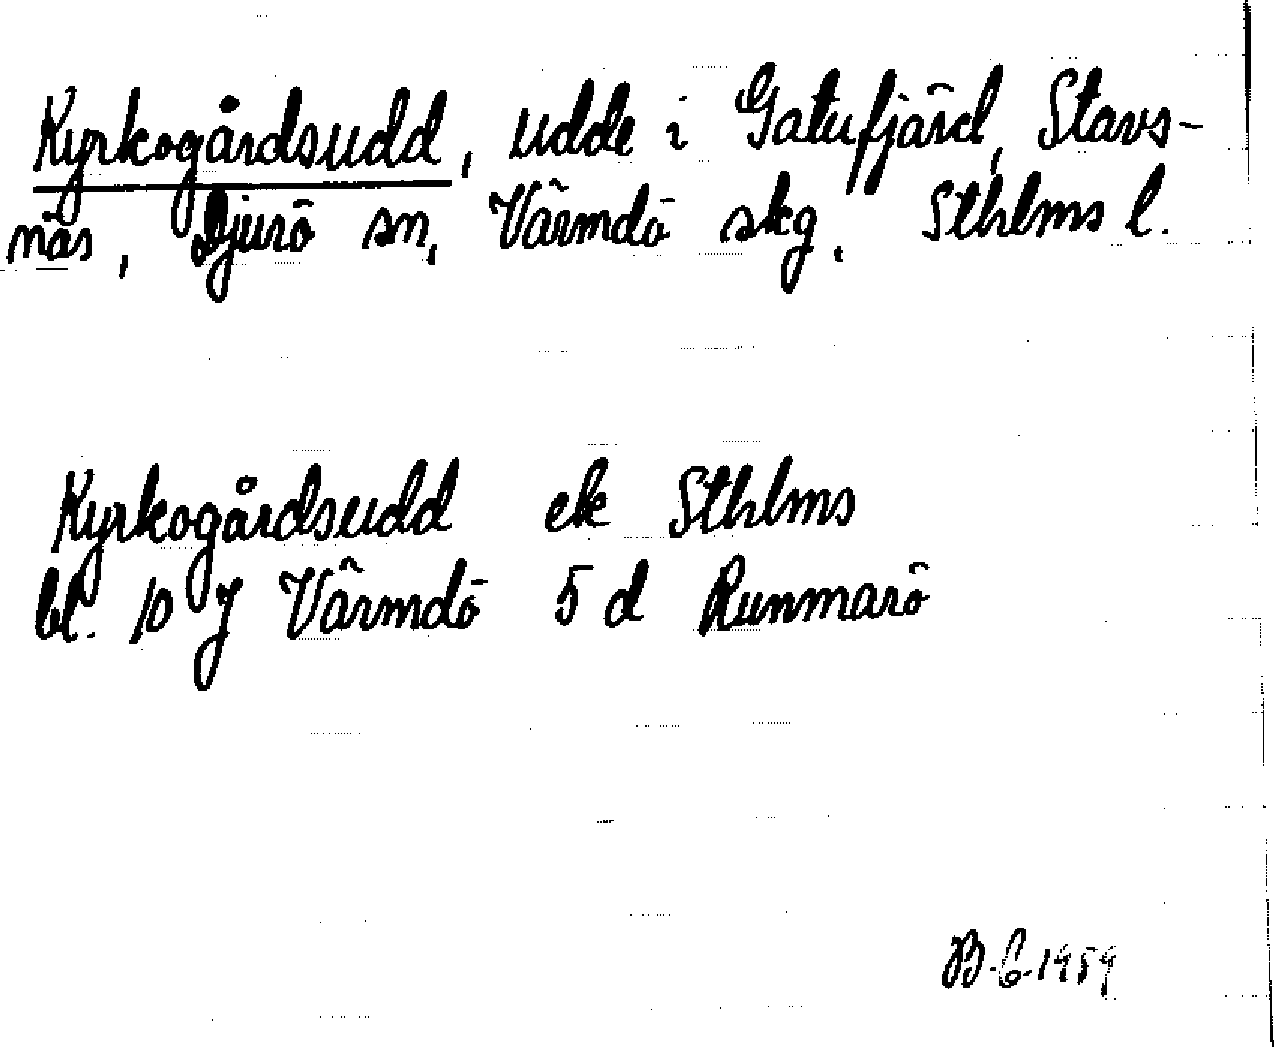 Kyrkogårdsudd, udde i Gatufjärd, Stavs-
näs, Djurö sn, Värmdö skg. Sthlms l.
Kyrkogårdsudd ek Sthlms
bl. 10 J Värmdö 5 d Runmarö
B.C. 1959